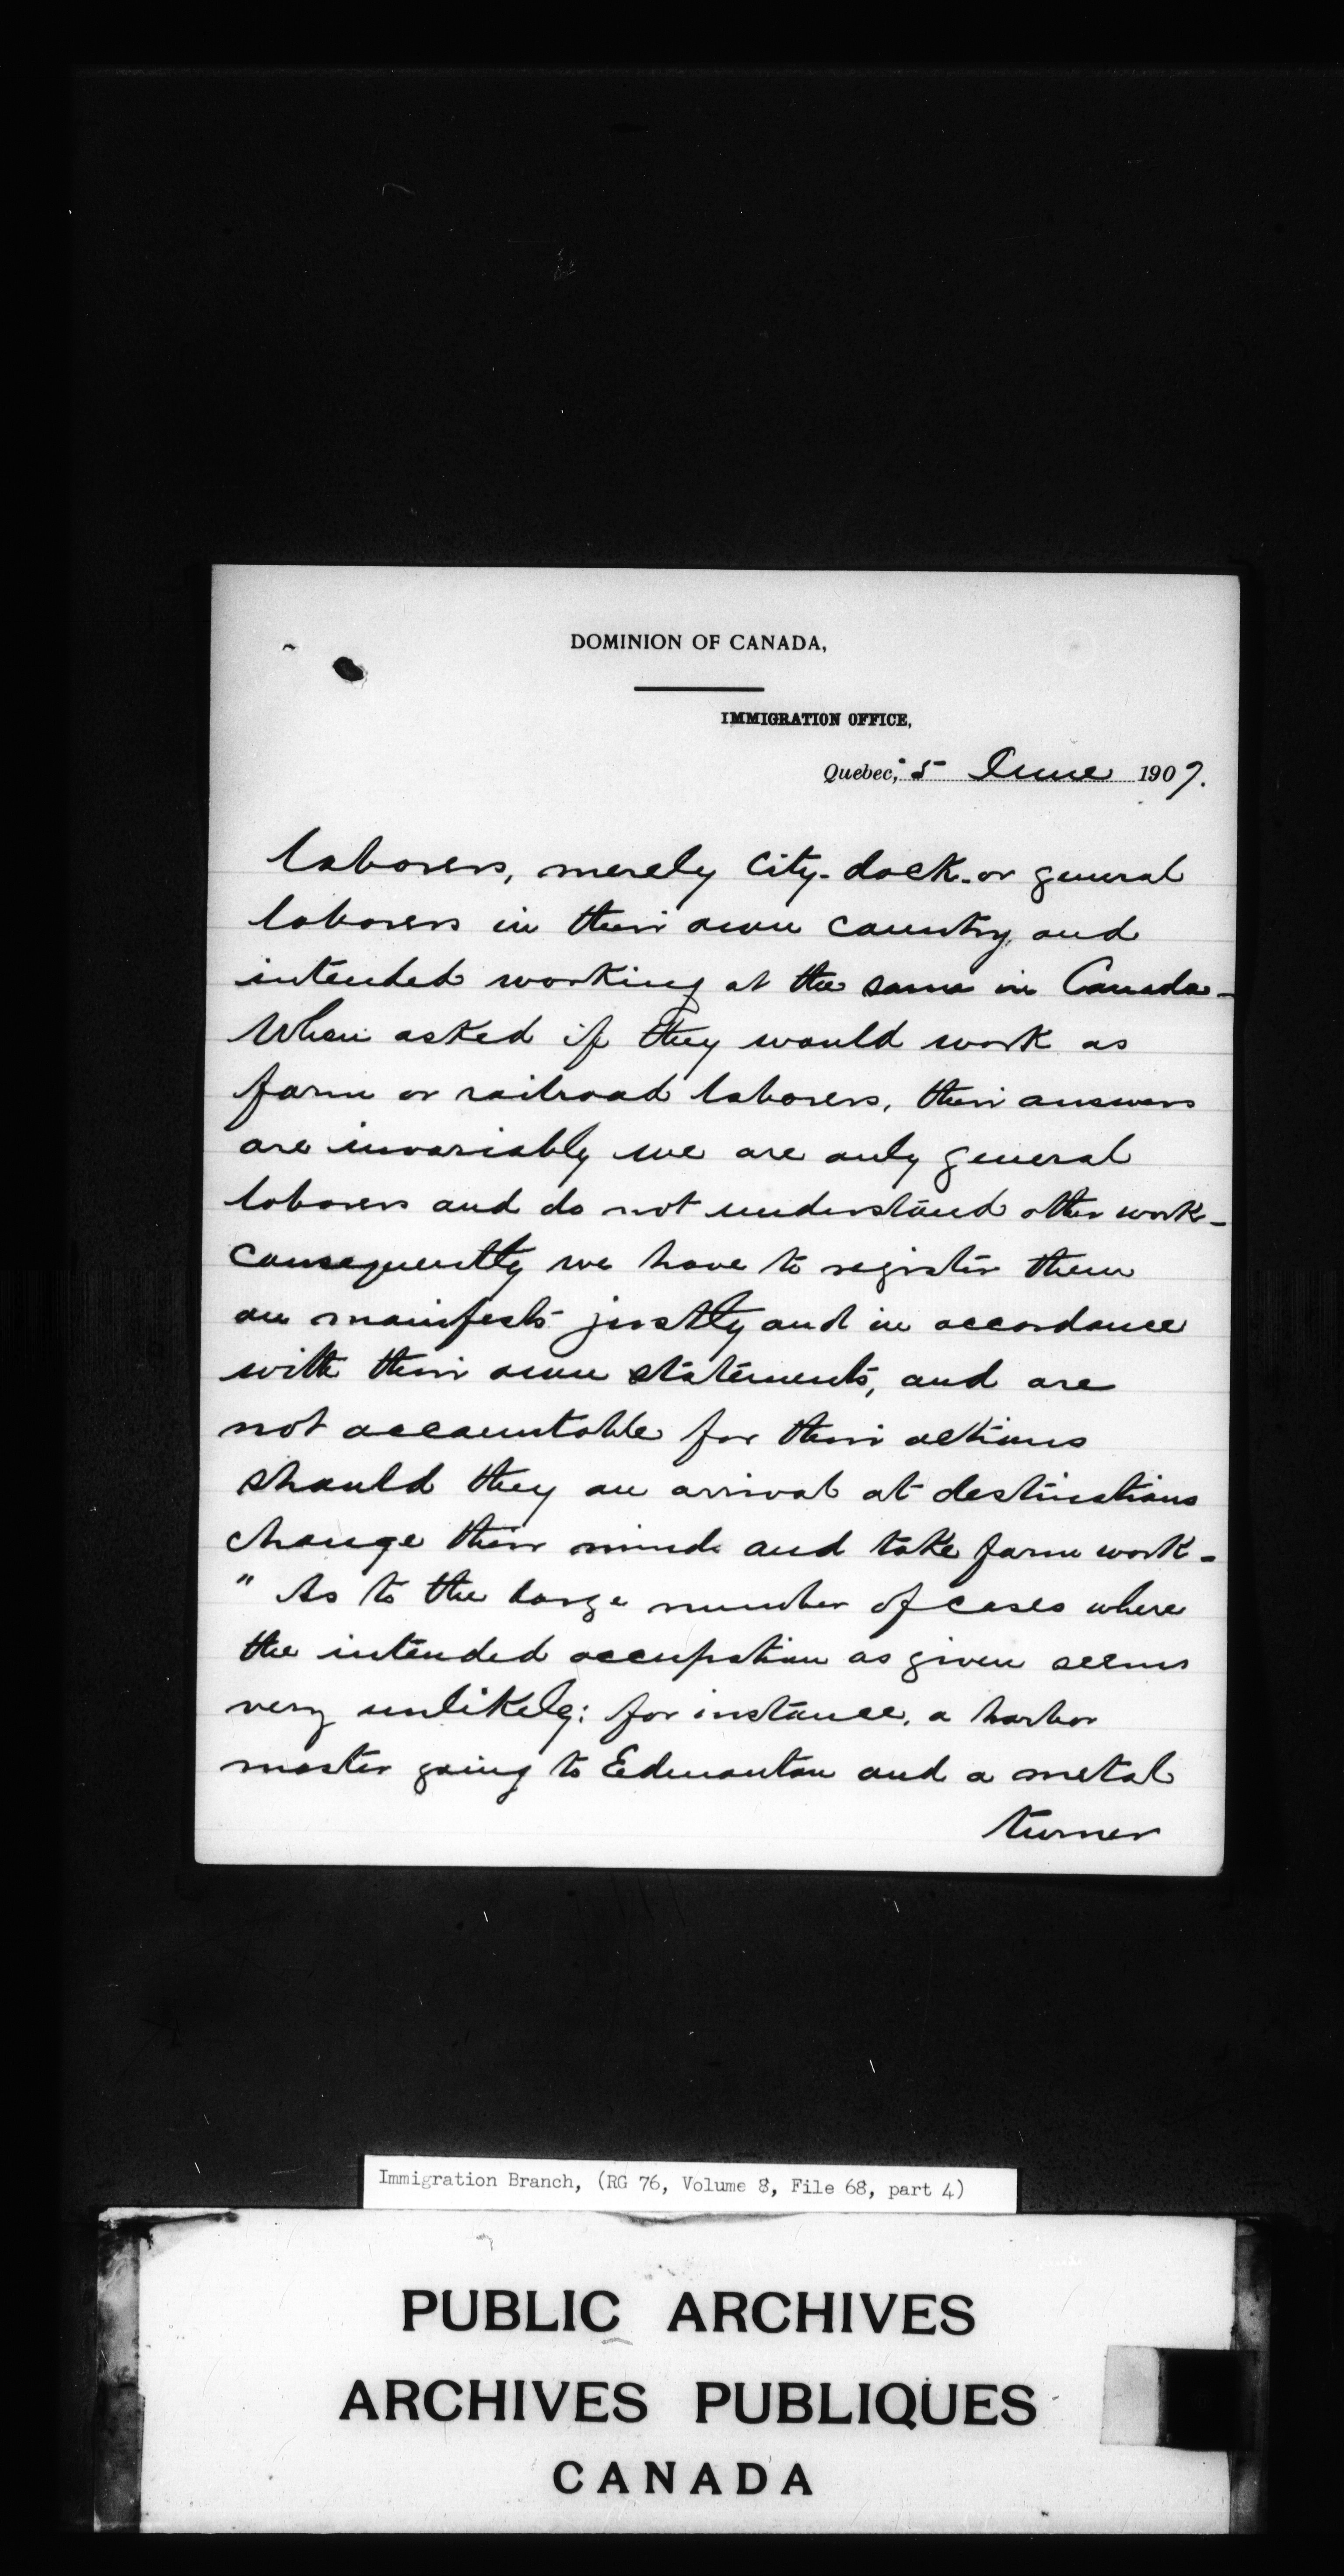 DOMINION OF CANADA,
IMMIGRATION OFFICE,
Quebec, 5 June 1907.
laborers, merely City-dock-or general
laborers in their own country, and
intended working at the same in Canada-
When asked if they would work as
farm or railroad laborers, their answers
are invariably we are only general
laborers and do not understand other work-
Consequently we have to register them
on manifests justly and in accordance
with their own statements, and are
not accountable for their actions
should they on arrival at destinations
change their minds and take farm work-
" As to the large number of cases where
the intended occupation as given seems
very unlikely; for instance, a harbor
master going to Edmonton and a metal
turner
Immigration Branch, (RG 76, Volume 8, File 68, part 4)
PUBLIC ARCHIVES
ARCHIVES PUBLIQUES
CANADA